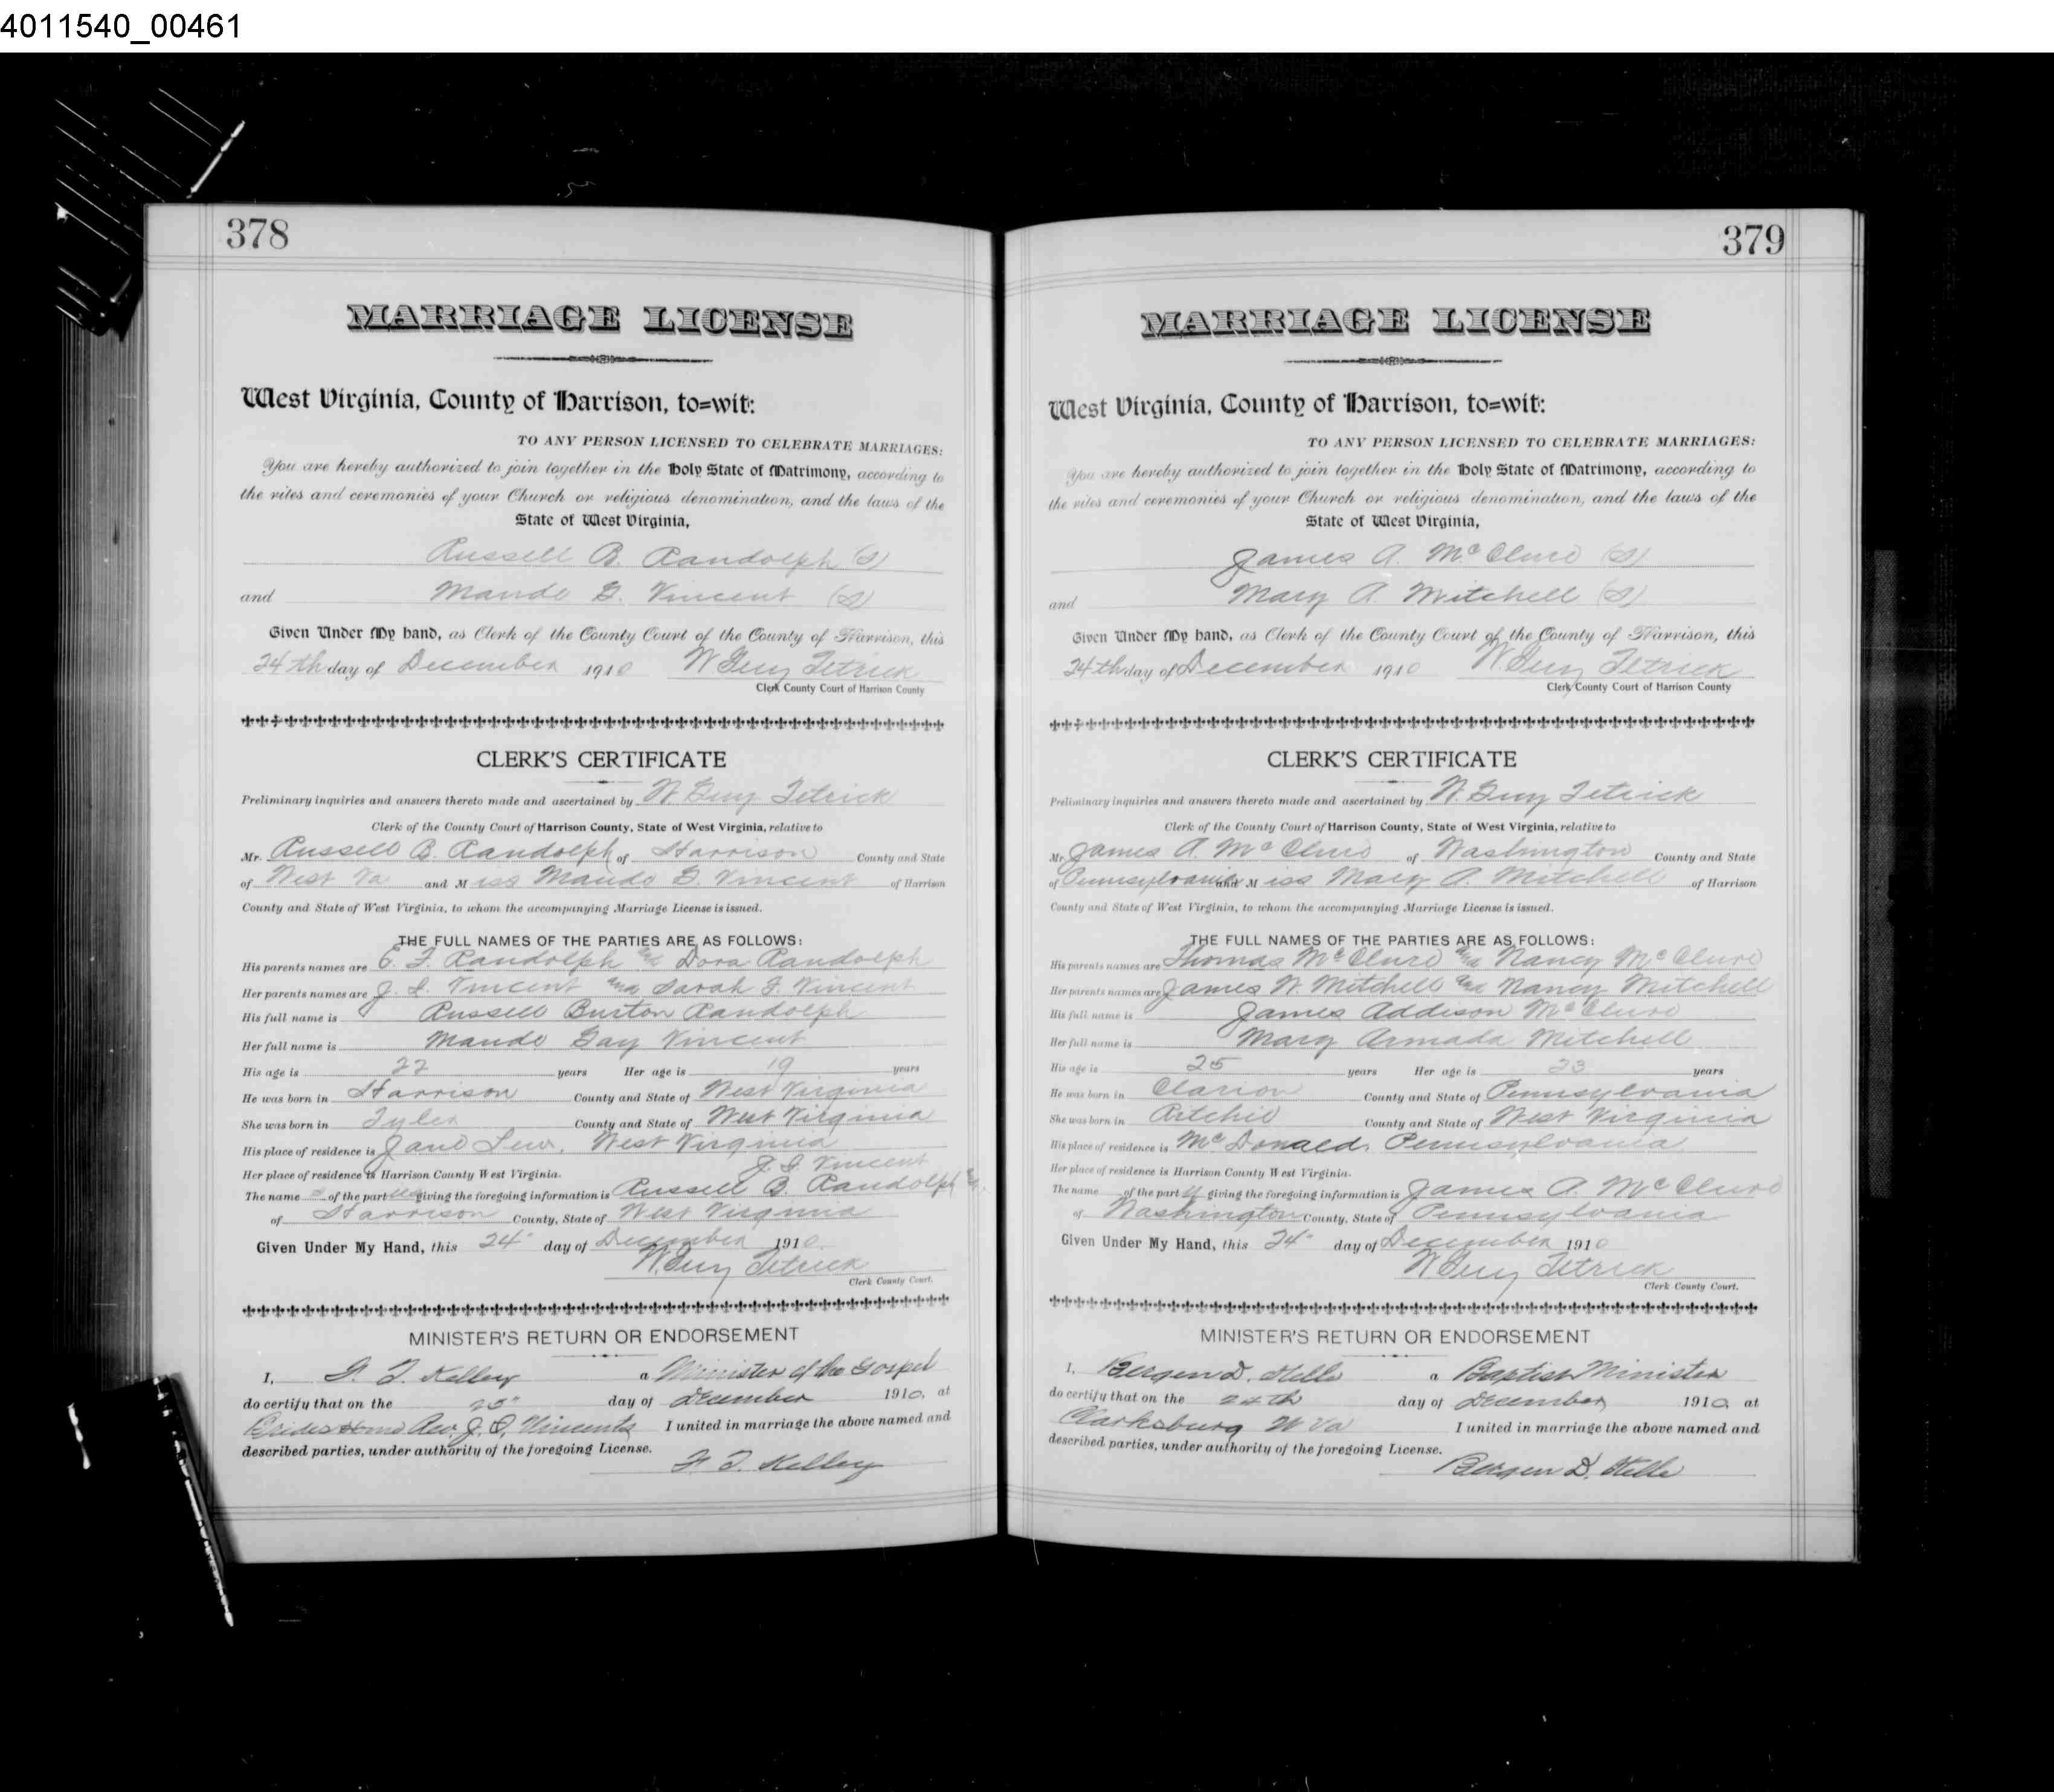 4011540_00461
378
MARRIAGE LICENSE
West Virginia, County of Harrison, to=wit:
TO ANY PERSON LICENSED TO CELEBRATE MARRIAGES:
You are hereby authorized to join together in the Holy State of Matrimony, according to
the rites and ceremonies of your Church or religious denomination, and the laws of the
State of West Virginia,
Russell B. Randolph (S)
and Maude G. Vincent (S)
Given Under My hand, as Clerk of the County Court of the County of Harrison, this
24th day of December 1910 W Guy Tetrick
Clerk County Court of Harrison County
CLERK'S CERTIFICATE
Preliminary inquiries and answers thereto made and ascertained by W Guy Tetrick
Clerk of the County Court of Harrison County, State of West Virginia, relative to
Mr. Russell B. Randolph of Harrison County and State
of West Va and Miss Maude G. Vincent of Harrison
County and State of West Virginia, to whom the accompanying Marriage License is issued.
THE FULL NAMES OF THE PARTIES ARE AS FOLLOWS:
His parents names are E. F. Randolph and Dora Randolph
Her parents names are J. I. Vincent and Sarah F. Vincent
His full name is Russell Burton Randolph
Her full name is Maude Gay Vincent
His age is 22 years Her age is 19 years
He was born in Harrison County and State of West Virginia
She was born in Tyler County and State of West Virginia
His place of residence is Jane Lew, West Virginia
Her place of residence is Harrison County West Virginia.
J. I. Vincent
The name s of the parties giving the foregoing information is Russell B. Randolph &
of Harrison County, State of West Virginia
Given Under My Hand, this 24" day of December 1910.
W. Guy Tetrick
Clerk County Court.
MINISTER'S RETURN OR ENDORSEMENT
I, Kelley a Minister of the Gospel
do certify that on the 25" day of December 1910. at
Brides Home Rev. J. Vincents I united in marriage the above named and
described parties, under authority of the foregoing License.
Kelley
379
MARRIAGE LICENSE
West Virginia, County of Harrison, to=wit:
TO ANY PERSON LICENSED TO CELEBRATE MARRIAGES:
You are hereby authorized to join together in the Holy State of Matrimony, according to
the rites and ceremonies of your Church or religious denomination, and the laws of the
State of West Virginia,
James A. McClure (S)
and Mary A. Mitchell (S)
Given Under My hand, as Clerk of the County Court of the County of Harrison, this
24th day of December 1910 W. Guy Tetrick
Clerk County Court of Harrison County
CLERK'S CERTIFICATE
Preliminary inquiries and answers thereto made and ascertained by W. Guy Tetrick
Clerk of the County Court of Harrison County, State of West Virginia, relative to
Mr. James A. McClure of Washington County and State
of Pennsylvania and Miss Mary A. Mitchell of Harrison
County and State of West Virginia, to whom the accompanying Marriage License is issued.
THE FULL NAMES OF THE PARTIES ARE AS FOLLOWS:
His parents names are Thomas McClure and Nancy McClure
Her parents names are James W. Mitchell and Nancy Mitchell
His full name is James Addison McClure
Her full name is Mary Armada Mitchell
His age is 25 years Her age is 23 years
He was born in Clarion County and State of Pennsylvania
She was born in Ritchie County and State of West Virginia
His place of residence is McDonald, Pennsylvania
Her place of residence is Harrison County West Virginia.
The name of the party giving the foregoing information is James A. McClure
of Washington County, State of Pennsylvania
Given Under My Hand, this 24" day of December 1910
W Guy Tetrick
Clerk County Court.
MINISTER'S RETURN OR ENDORSEMENT
I, Bergen D. Stelle a Baptist Minister
do certify that on the 24th day of December 1910. at
Clarksburg W Va I united in marriage the above named and
described parties, under authority of the foregoing License.
Bergen D. Stelle